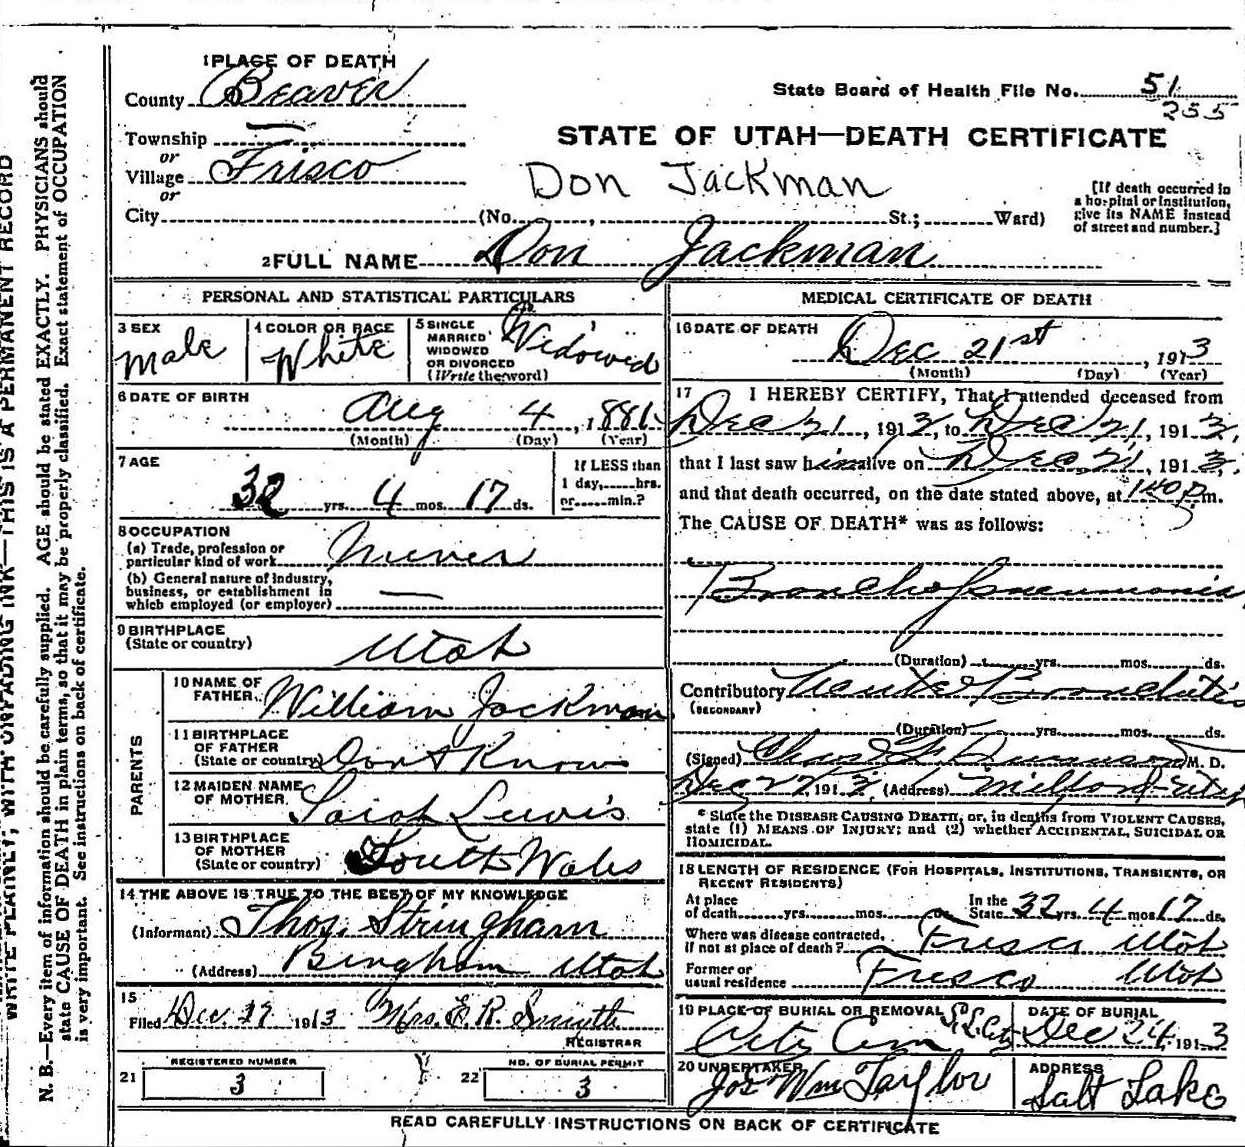 1 PLACE OF DEATH
County Beaver
State Board of Health File No. 51
255
Township —
or
Village Frisco
or
City (No. , St.; Ward)
STATE OF UTAH—DEATH CERTIFICATE
Don Jackman
[If death occurred in
a hospital or institution,
give its NAME instead
of street and number.]
2 FULL NAME Don Jackman
PERSONAL AND STATISTICAL PARTICULARS
3 SEX
Male
4 COLOR OR RACE
White
5 SINGLE
MARRIED
WIDOWED
OR DIVORCED
(Write the word)
Widowed
6 DATE OF BIRTH
Aug 4, 1881
(Month) (Day) (Year)
7 AGE
32 yrs. 4 mos. 17 ds.
If LESS than
1 day, hrs.
or min.?
8 OCCUPATION
(a) Trade, profession or
particular kind of work Miner
(b) General nature of industry,
business, or establishment in
which employed (or employer) —
9 BIRTHPLACE
(State or country) Utah
PARENTS
10 NAME OF
FATHER William Jackman
11 BIRTHPLACE
OF FATHER
(State or country) Don't Know
12 MAIDEN NAME
OF MOTHER Sarah Lewis
13 BIRTHPLACE
OF MOTHER
(State or country) South Wales
14 THE ABOVE IS TRUE TO THE BEST OF MY KNOWLEDGE
(Informant) Thos. Stringham
(Address) Bingham Utah
15
Filed Dec 27 1913 Mrs. E. R. Smyth
REGISTRAR
21 REGISTERED NUMBER
3
22 NO. OF BURIAL PERMIT
3
MEDICAL CERTIFICATE OF DEATH
16 DATE OF DEATH
Dec 21st, 1913
(Month) (Day) (Year)
17 I HEREBY CERTIFY, That I attended deceased from
Dec 21, 1913, to Dec 21, 1913,
that I last saw him alive on Dec 21, 1913,
and that death occurred, on the date stated above, at 140 P m.
The CAUSE OF DEATH* was as follows:
Broncho Pneumonia
(Duration) yrs. mos. ds.
Contributory Acute Bronchitis
(SECONDARY)
(Duration) yrs. mos. ds.
(Signed) Chas M. D.
Dec 22 1913 (Address) Milford Utah
* State the DISEASE CAUSING DEATH, or, in deaths from VIOLENT CAUSES,
state (1) MEANS OF INJURY; and (2) whether ACCIDENTAL, SUICIDAL OR
HOMICIDAL.
18 LENGTH OF RESIDENCE (FOR HOSPITALS, INSTITUTIONS, TRANSIENTS, OR
RECENT RESIDENTS)
At place
of death yrs. mos. ds.
In the
State 32 yrs. 4 mos. 17 ds.
Where was disease contracted,
if not at place of death? Frisco Utah
Former or
usual residence Frisco Utah
19 PLACE OF BURIAL OR REMOVAL
City Cem S.L. City
DATE OF BURIAL
Dec 24, 1913
20 UNDERTAKER
Jos Wm Taylor
ADDRESS
Salt Lake
READ CAREFULLY INSTRUCTIONS ON BACK OF CERTIFICATE
WRITE PLAINLY, WITH UNFADING INK—THIS IS A PERMANENT RECORD
N. B.—Every item of information should be carefully supplied. AGE should be stated EXACTLY. PHYSICIANS should
state CAUSE OF DEATH in plain terms, so that it may be properly classified. Exact statement of OCCUPATION
is very important. See instructions on back of certificate.